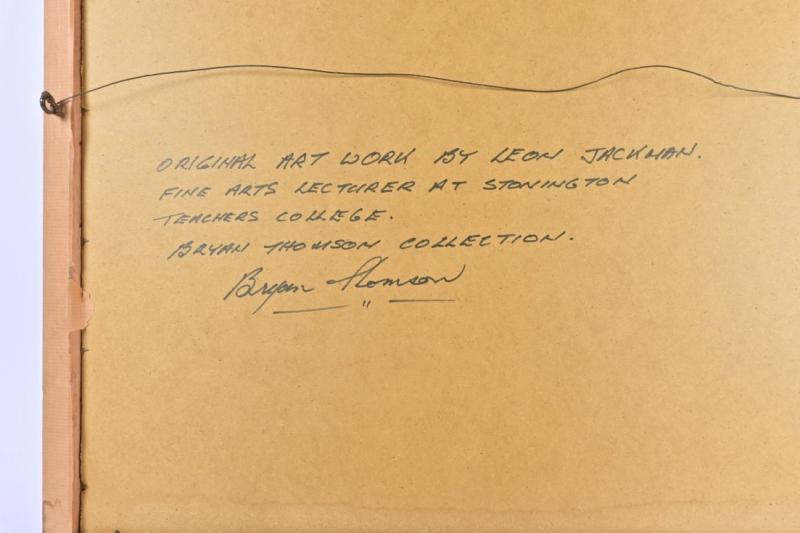 ORIGINAL ART WORK BY LEON JACKMAN.
FINE ARTS LECTURER AT STONINGTON
TEACHERS COLLEGE.
BRYAN THOMSON COLLECTION.
Bryan Thomson
"